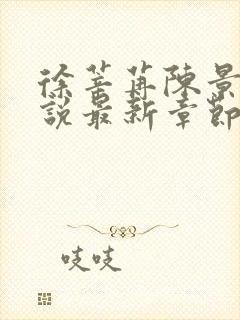 徐苔苒陳景
說最新章節
吱吱